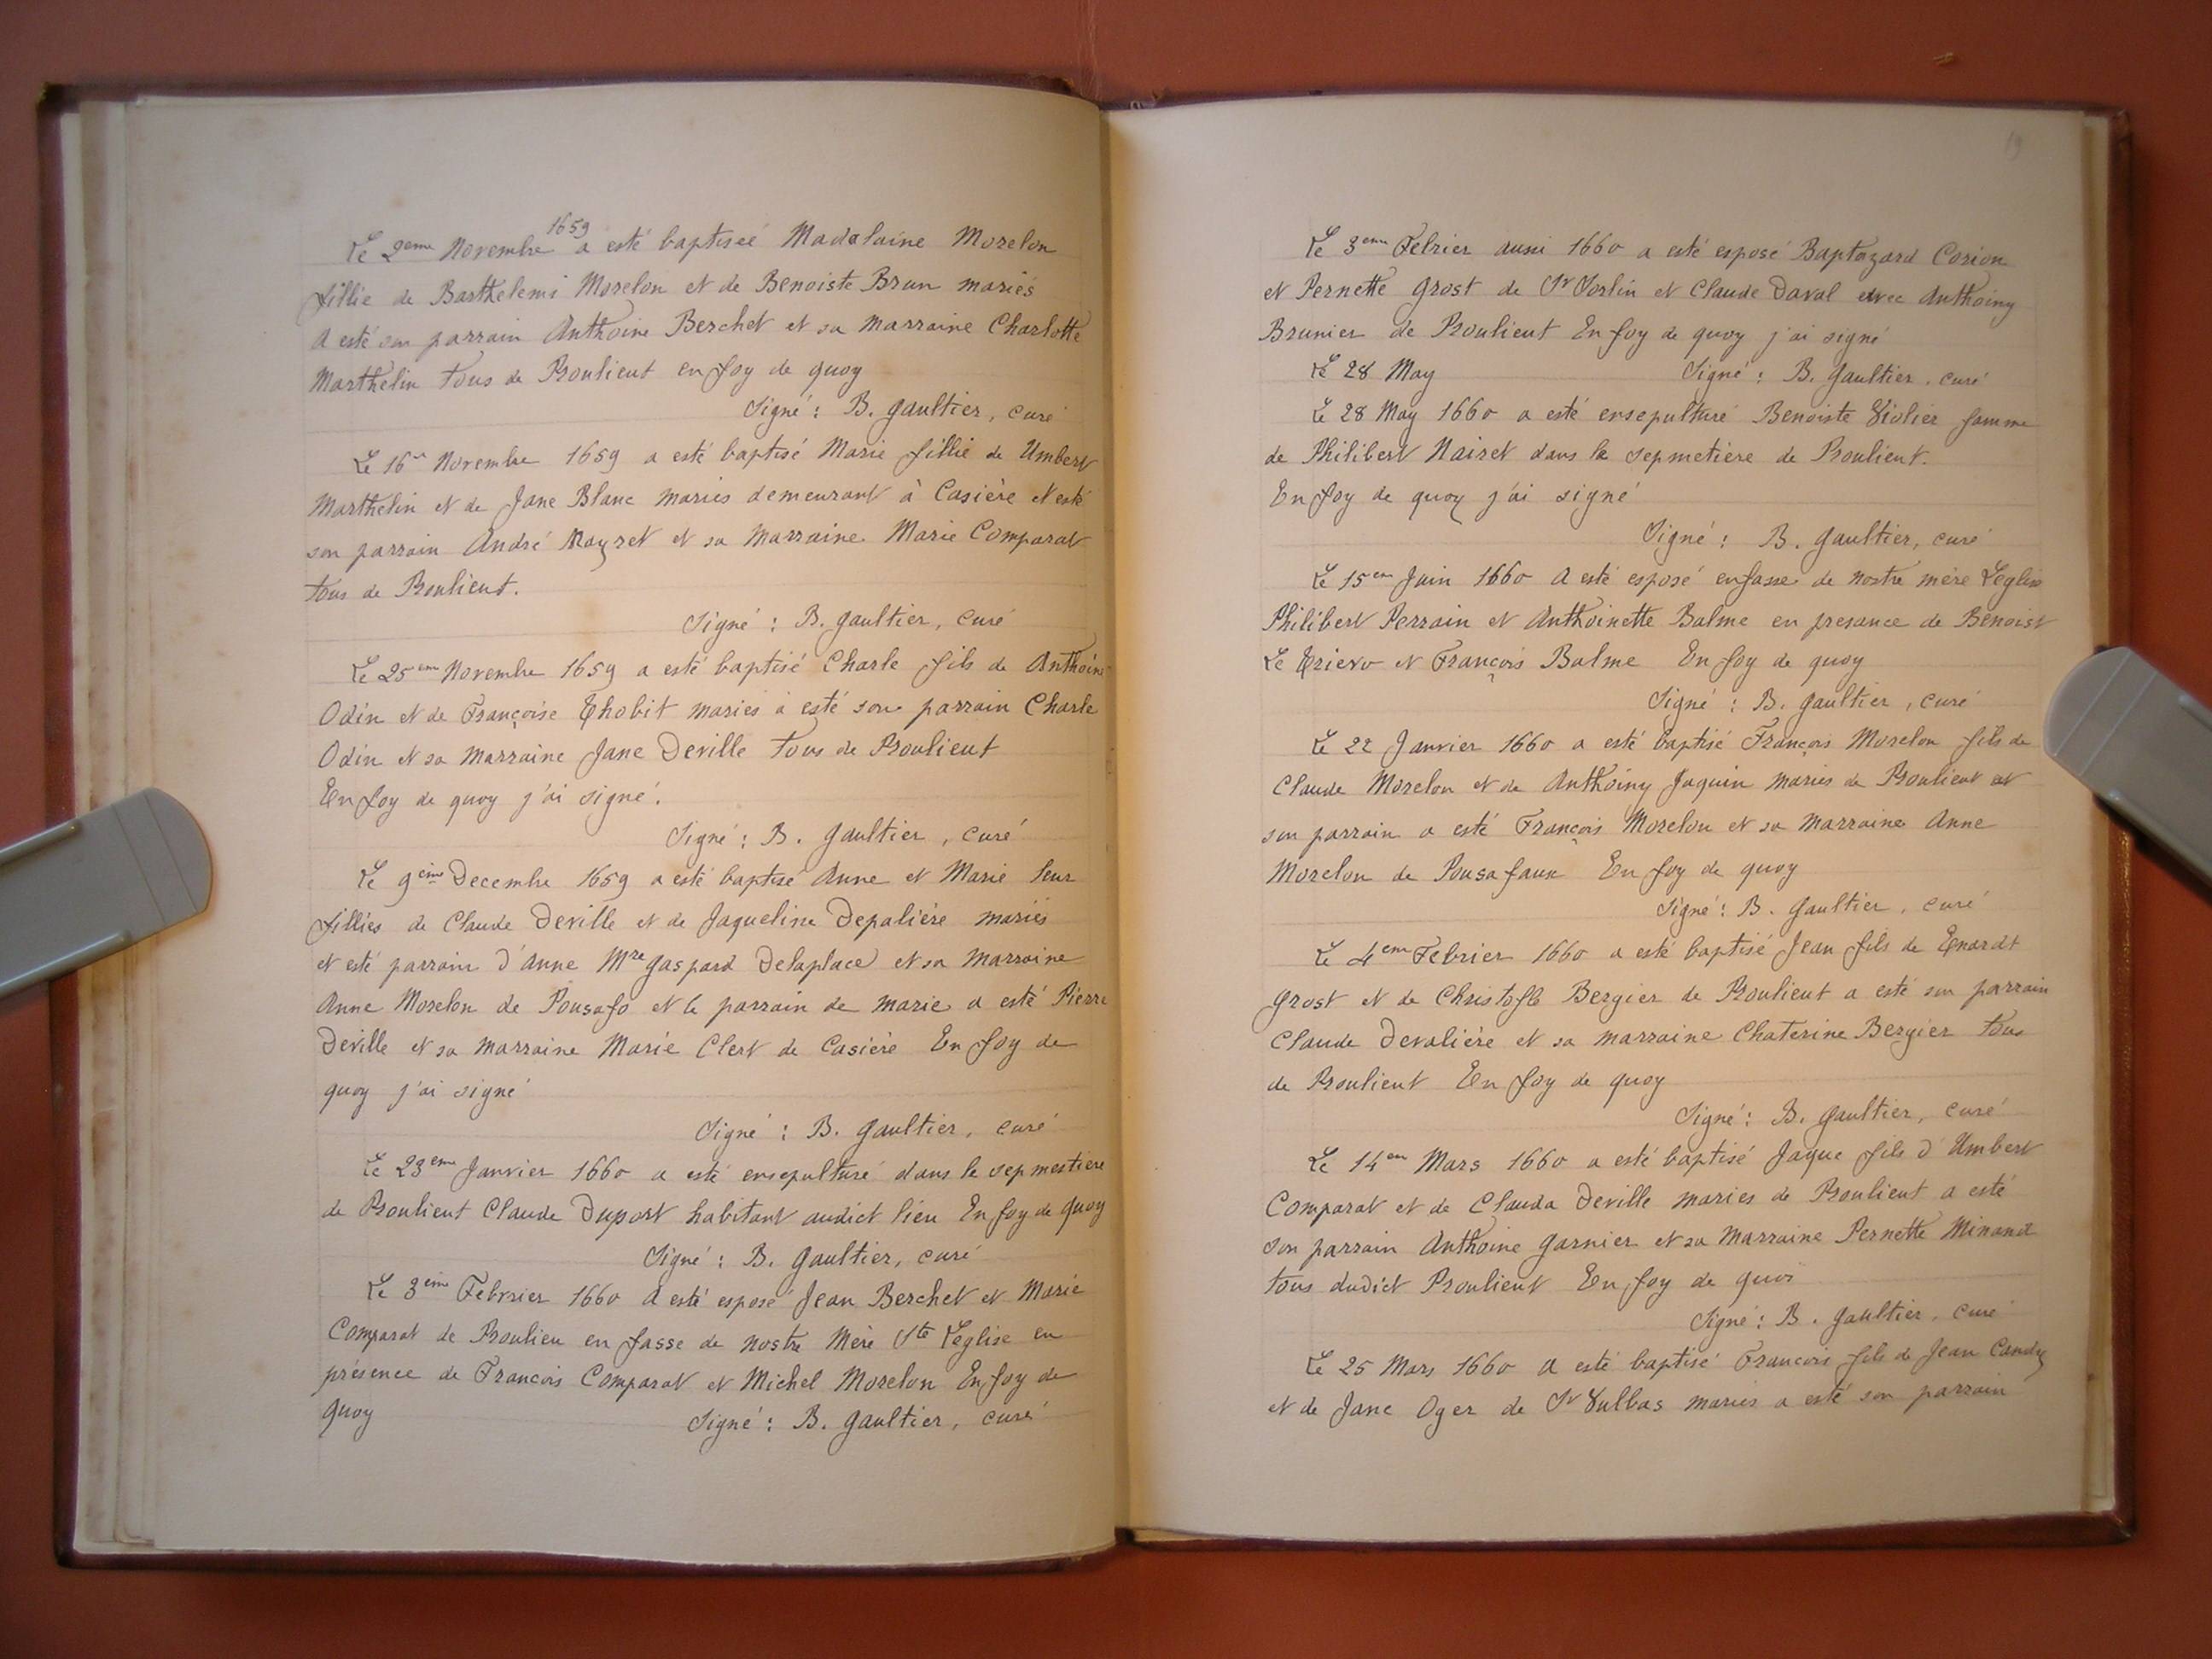 Le 2eme Novembre 1659 a esté baptiseé Madalaine Morelon
fillie de Barthelemi Morelon et de Benoiste Brun mariés
A esté son parrain Anthoine Berchet et sa marraine Charlotte
Marthelin tous de Proulieut en foy de quoy
Signé : B. Gaultier, curé
Le 16e Novembre 1659 a esté baptisé Marie fillie de Umbert
Marthelin et de Jane Blanc mariés demeurant à Casière et esté
son parrain André Mayret et sa marraine Marie Comparat
tous de Proulieut.
Signé : B. Gaultier, curé
Le 25em Novembre 1659 a esté baptisé Charle fils de Anthoine
Odin et de Françoise Thobit mariés à esté son parrain Charle
Odin et sa marraine Jane Deville tous de Proulieut
En foy de quoy j'ai signé.
Signé : B. Gaultier, curé
Le 9ème Decembre 1659 a esté baptisé Anne et Marie leur
fillies de Claude Deville et de Jaqueline Depalière mariés
et esté parrain d'Anne Mre Gaspard Delaplace et sa marraine
Anne Morelon de Pousafo et le parrain de marie a esté Pierre
Deville et sa marraine Marie Clert de Casière En foy de
quoy j'ai signé
Signé : B. Gaultier, curé
Le 23eme Janvier 1660 a esté ensepulturé dans le sepmestiere
de Proulieut Claude Duport habitant audict lieu En foy de quoy
Signé : B. Gaultier, curé
Le 3ème Febvrier 1660 A esté esposé Jean Berchet et Marie
Comparat de Proulieu en fasse de nostre Mère Ste Leglise en
présence de François Comparat et Michel Morelon En foy de
quoy Signé : B. Gaultier, curé
19
Le 3eme Febrier aussi 1660 a esté esposé Baptazard Corion
et Pernette Grost de St Sorlin et Claude Daval avec Anthoiny
Brunier de Proulieut En foy de quoy j'ai signé
Le 28 May Signé : B. Gaultier, curé
Le 28 May 1660 a esté ensepulturé Benoiste Violier famme
de Philibert Nairet dans le sepmetière de Proulieut.
En foy de quoy j'ai signé
Signé : B. Gaultier, curé
Le 15em Juin 1660 A esté esposé enfasse de nostre mère Leglise
Philibert Perrain et Anthoinette Balme en presance de Benoist
Le Trievo et François Balme En foy de quoy
Signé : B. Gaultier, curé
Le 22 Janvier 1660 a esté baptisé François Morelon fils de
Claude Morelon et de Anthoiny Jaquin mariés de Proulieut et
son parrain a esté François Morelon et sa marraine Anne
Morelon de Pousafaux En foy de quoy
Signé : B. Gaultier, curé
Le 4em Febrier 1660 a esté baptisé Jean fils de Enardt
Grost et de Christofle Bergier de Proulieut a esté son parrain
Claude Devalière et sa marraine Chaterine Bergier tous
de Proulieut En foy de quoy
Signé : B. Gaultier, curé
Le 14em Mars 1660 a esté baptisé Jaque fils d'Umbert
Comparat et de Clauda Deville mariés de Proulieut a esté
son parrain Anthoine Garnier et sa marraine Pernette Minand
tous dudict Proulieut En foy de quoi
Signé : B. Gaultier, curé
Le 25 Mars 1660 a esté baptisé François fils de Jean Candy
et de Jane Oger de St Vulbas mariés a esté son parrain